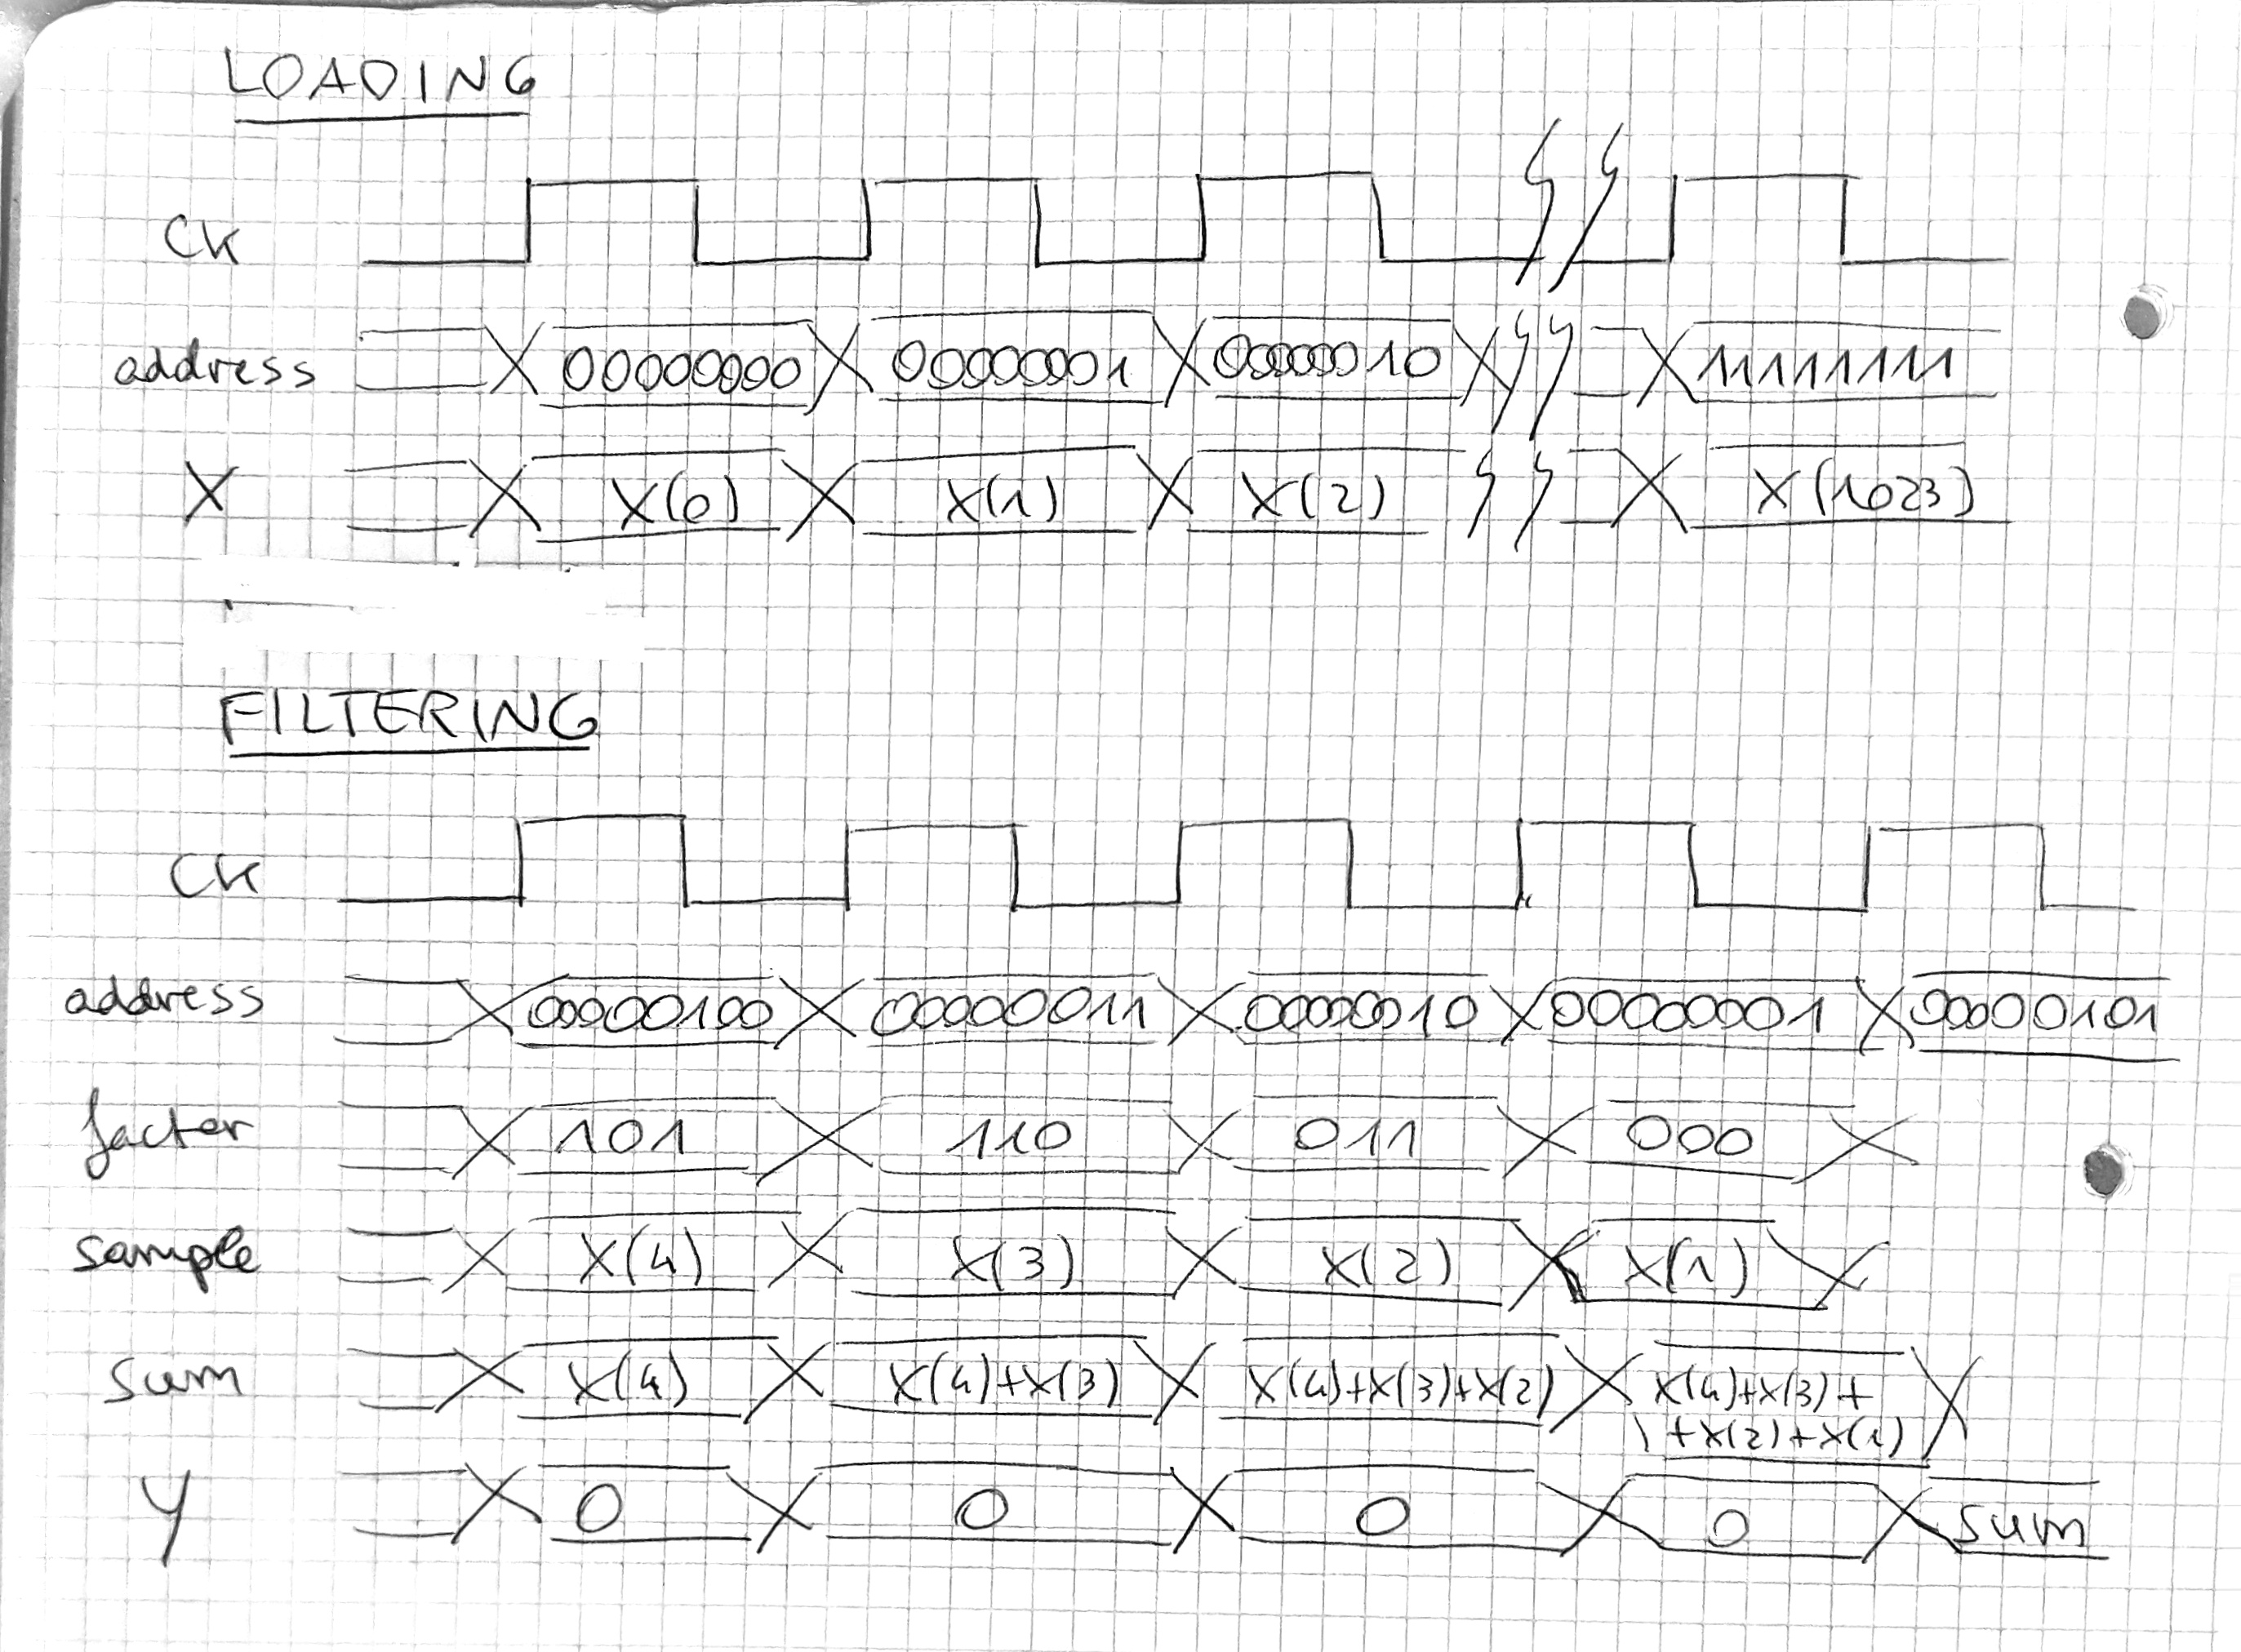 LOADING
CK
address 00000000 00000001 00000010 11111111
X X(0) X(1) X(2) X(1023)
FILTERING
CK
address 00000100 00000011 00000010 00000001 00000101
factor 101 110 011 000
sample X(4) X(3) X(2) X(1)
sum X(4) X(4)+X(3) X(4)+X(3)+X(2) X(4)+X(3)+
+X(2)+X(1)
Y 0 0 0 0 sum